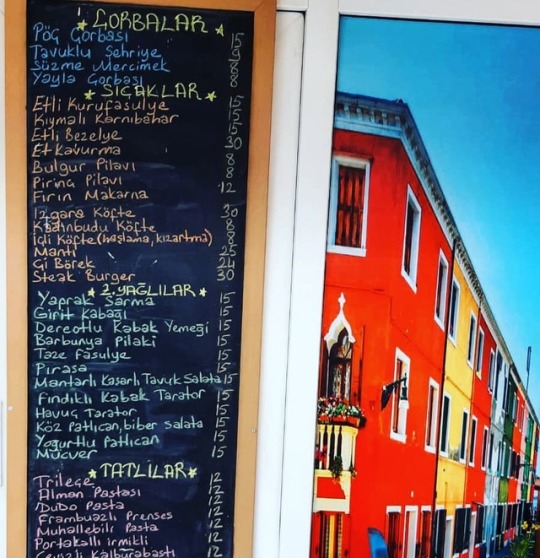 ★ ÇORBALAR ★
Pöç Çorbası 15
Tavuklu Şehriye 8
Süzme Mercimek 8
Yayla Çorbası 8
★ SICAKLAR ★
Etli Kurufasulye 15
Kıymalı Karnıbahar 15
Etli Bezelye 15
Et Kavurma 30
Bulgur Pilavı 8
Pirinç Pilavı 8
Fırın Makarna 12
Izgara Köfte 30
Kadınbudu Köfte 8
İçli Köfte (haşlama, kızartma) 8
Mantı 25
Çi Börek 24
Steak Burger 30
★ Z.YAĞLILAR ★
Yaprak Sarma 15
Girit Kabağı 15
Dereotlu Kabak Yemeği 15
Barbunya Pilaki 15
Taze Fasulye 15
Pırasa 15
Mantarlı Kaşarlı Tavuk Salata 15
Fındıklı Kabak Tarator 15
Havuç Tarator 15
Köz Patlıcan, biber salata 15
Yoğurtlu Patlıcan 15
Mücver 15
★ TATLILAR ★
Trileçe 12
Alman Pastası 12
Dudo Pasta 12
Frambuazlı Prenses 12
Muhallebili Pasta 12
Portakallı irmikli 12
Cevizli Kalburabastı 12